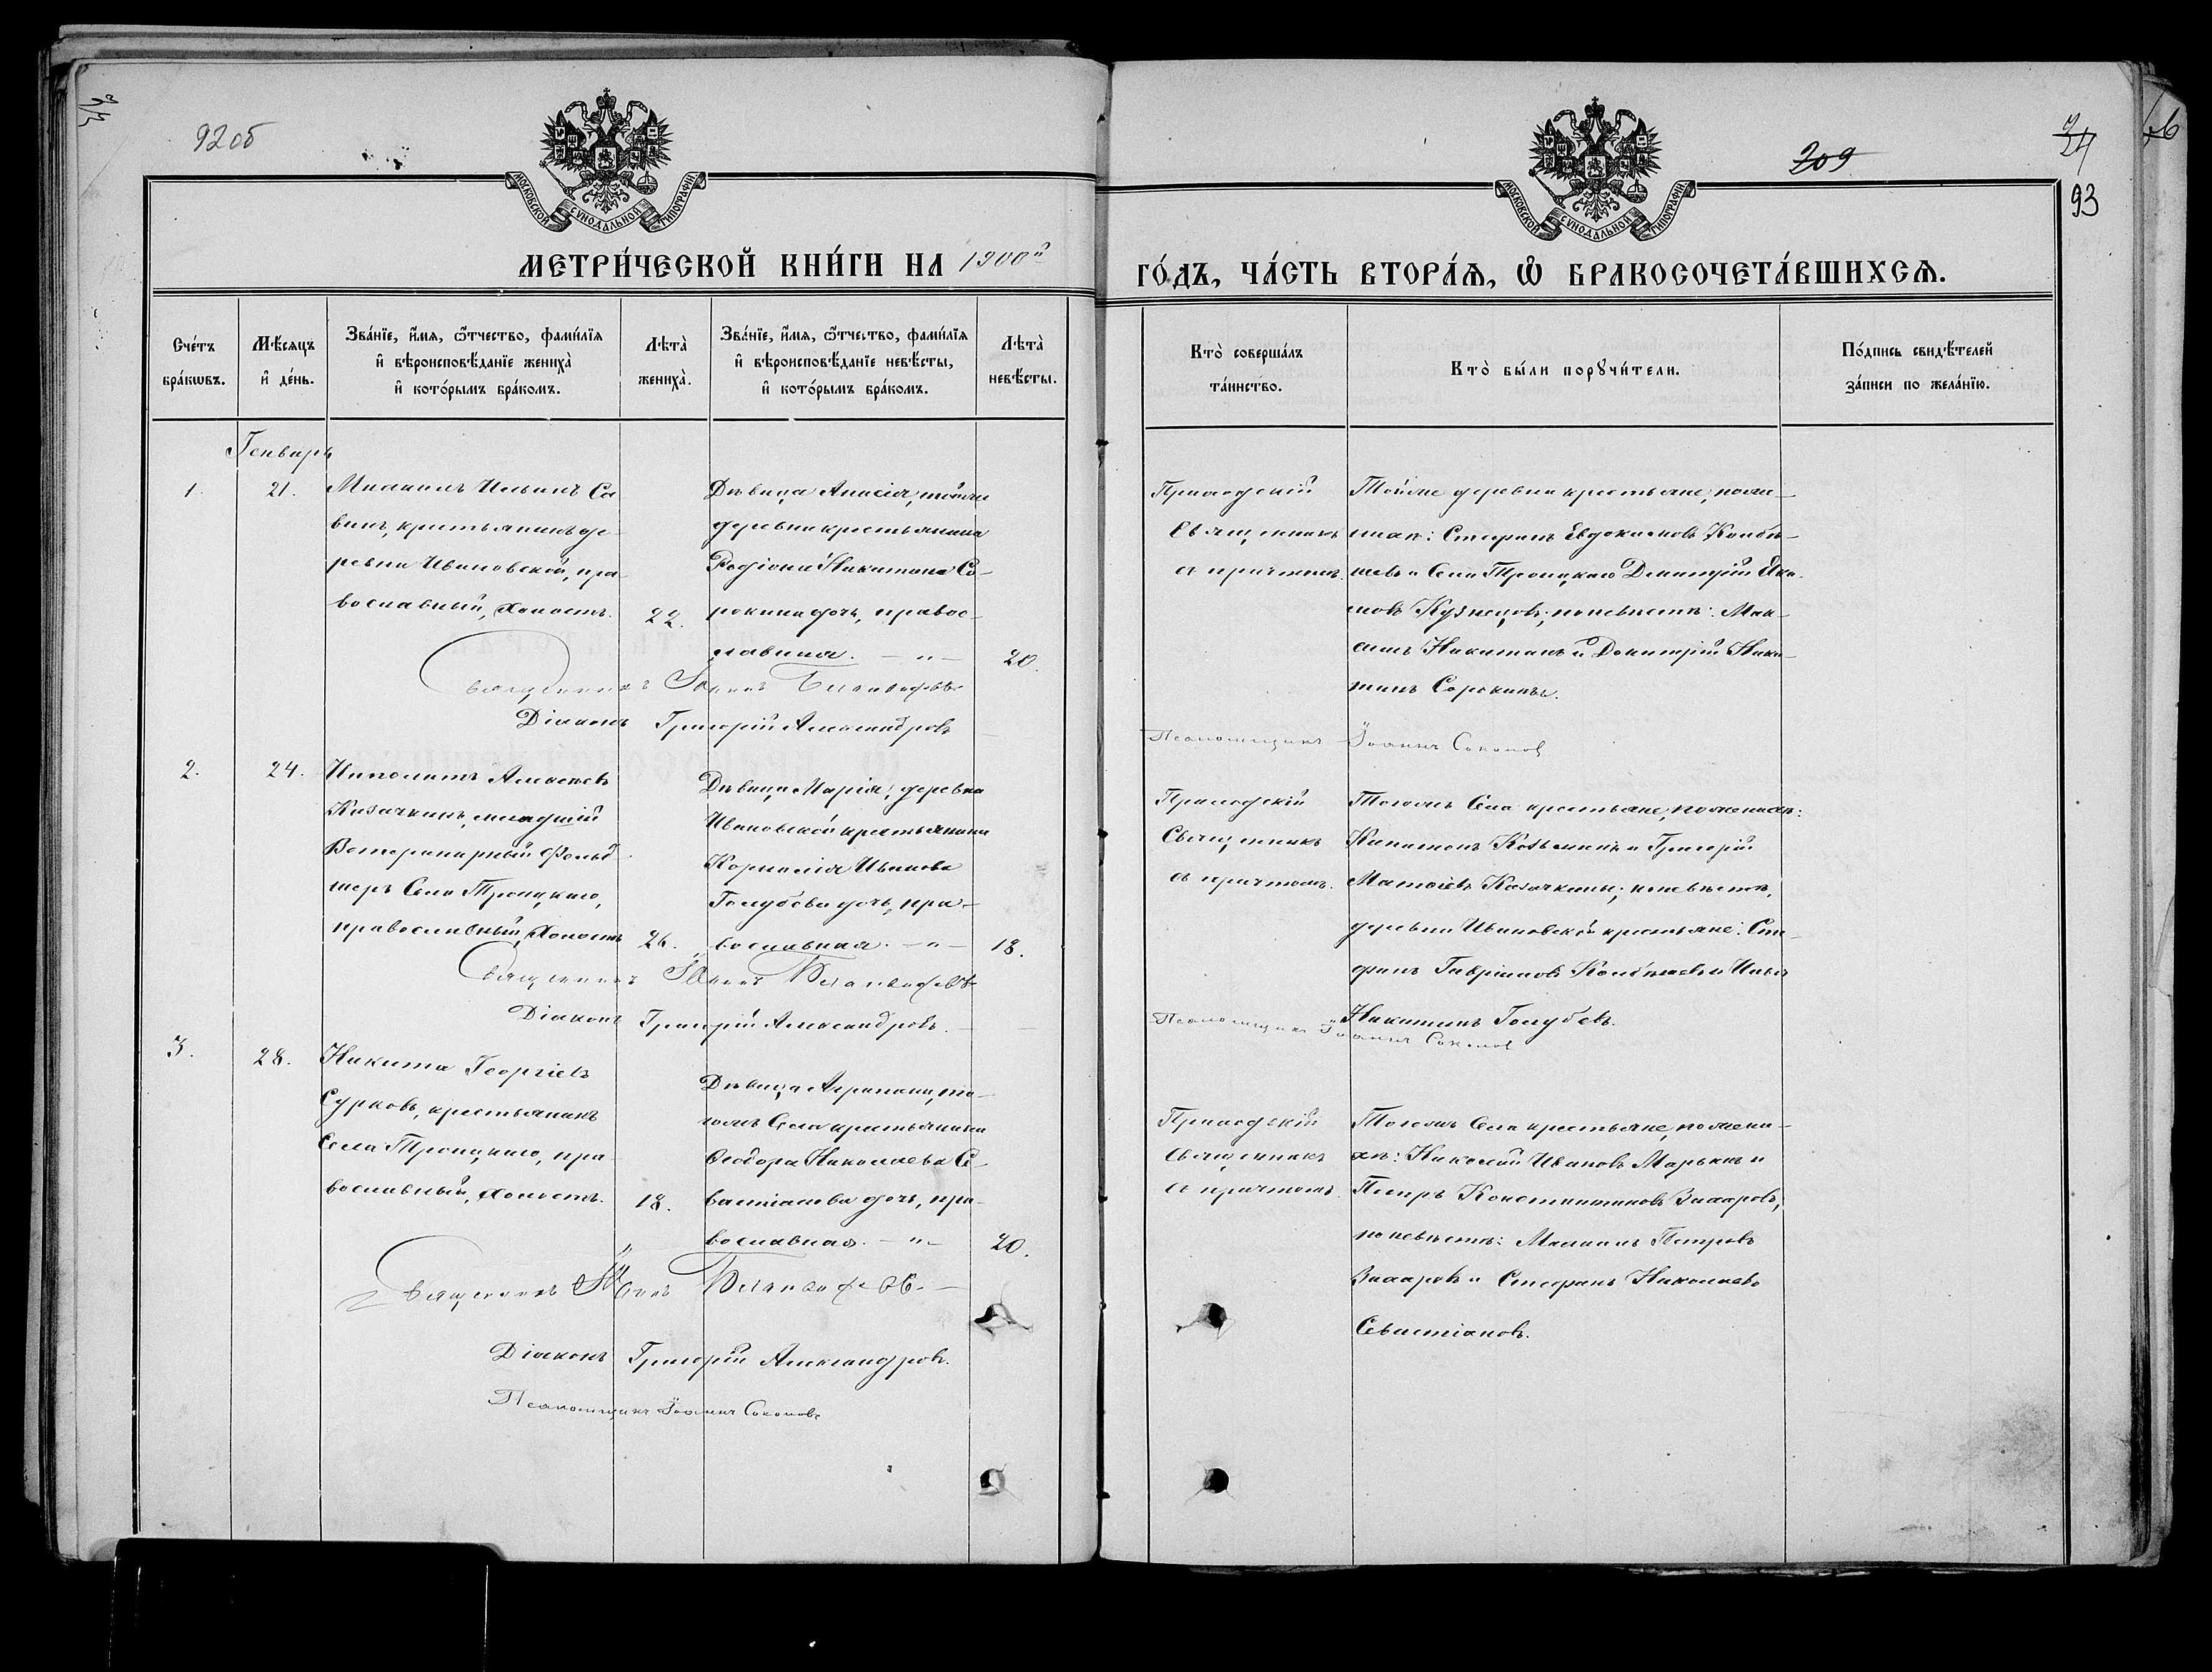 92об
209
93
МОСКОВСКОЙ СѴНОДАЛЬНОЙ ТИПОГРАФІИ
МОСКОВСКОЙ СѴНОДАЛЬНОЙ ТИПОГРАФІИ
МЕТРИ́ЧЕСКОЙ КНИ́ГИ НА 1900й
ГО́ДЪ, ЧА́СТЬ ВТОРА́Ѧ, Ѡ҆ БРАКОСОЧЕТА́ВШИХСѦ.
Сче́тъ
бра́кѡвъ.
Мѣ́сяцъ
и҆ де́нь.
Зва́нїе, и҆́мя, ѻ҆́тчество, фамѝлїя
и҆ вѣроисповѣ́данїе жениха̀
и҆ кото́рымъ бра́комъ.
Лѣта̀
жениха̀.
Зва́нїе, и҆́мя, ѻ҆́тчество, фамѝлїя
и҆ вѣроисповѣ́данїе невѣ́сты,
и҆ кото́рымъ бра́комъ.
Лѣта̀
невѣ́сты.
Кто̀ соверша́лъ
та́инство.
Кто̀ бы́ли порꙋчи́тели.
По́дпись свидѣ́телей
за́писи по жела́нїю.
Генварь
1.
21.
Михаилъ Ильинъ Са
винъ, крестьянинъ де
ревни Ивановской, пра-
вославный, холостъ.
22.
Дѣвица Анисія, тойже
деревни крестьянина
Родіона Никитина Со-
рокина дочь, правос-
лавная. — „ —
20.
Приходскій
Священникъ
съ причтомъ.
Тойже деревни крестьяне, по же-
нихѣ: Стефанъ Евдокимовъ Конбы-
шевъ и Села Троицкаго Димитрій Яки-
мовъ Кузнецовъ; по невѣстѣ: Мак-
симъ Никитинъ и Димитрій Ники-
тинъ Сорокины.
Священникъ Іоаннъ
Діаконъ Григорій Александровъ
Псаломщикъ Іоаннъ Соколов
2.
24.
Ипполитъ Алексѣевъ
Казачкинъ, младшій
Ветеринарный Фельд
шеръ Села Троицкаго,
православный, холостъ
26.
Дѣвица Марія, деревни
Ивановской крестьянина
Корнилія Иванова
Голубева дочь, пра-
вославная. — „ —
18.
Приходскій
Священникъ
съ причтомъ.
Тогожъ Села крестьяне, по женихѣ:
Капитонъ Козьминъ и Григорій
Матвѣевъ Казачкины; по невѣстѣ,
деревни Ивановской крестьяне: Сте-
фанъ Гавриловъ Конбышевъ и Илья
Никитинъ Голубевъ.
Священникъ Іоаннъ
Діаконъ Григорій Александровъ.
Псаломщикъ Іоаннъ Соколов
3.
28.
Никита Георгіевъ
Сурковъ, крестьянинъ
Села Троицкаго, пра-
вославный, холостъ.
18.
Дѣвица Агрипина, то-
гожъ Села крестьянина
Ѳеодора Николаева Се-
вастіанова дочь, пра-
вославная. — „ —
20.
Приходскій
Священникъ
съ причтомъ.
Тогожъ Села крестьяне, по жени-
хѣ: Николай Ивановъ Марьинъ и
Петръ Константиновъ Захаровъ,
по невѣстѣ: Михаилъ Петровъ
Захаровъ и Стефанъ Николаевъ
Севастіановъ.
Священникъ Іоаннъ
Діаконъ Григорій Александровъ.
Псаломщикъ Іоаннъ Соколовъ